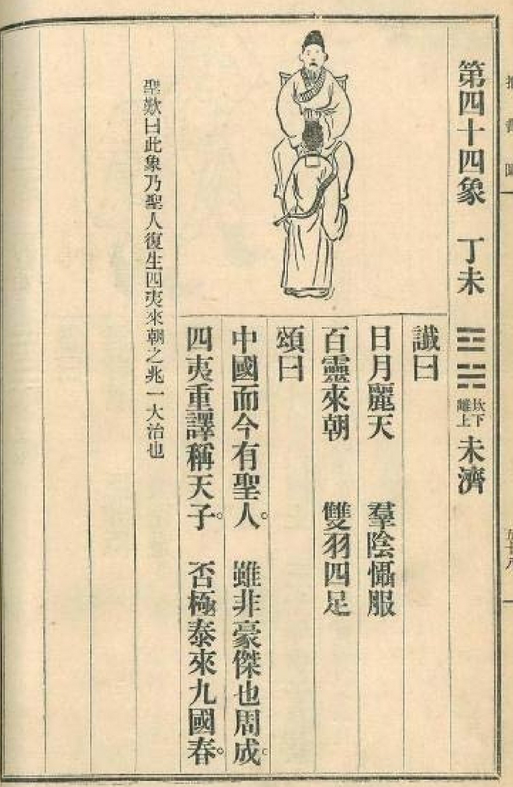 第四十四象 丁未 ䷿ 坎下離上 未濟
讖曰
日月麗天 羣陰懾服
百靈來朝 雙羽四足
頌曰
中國而今有聖人。 雖非豪傑也周成。
四夷重譯稱天子。 否極泰來九國春。
聖歎曰此象乃聖人復生四夷來朝之兆一大治也